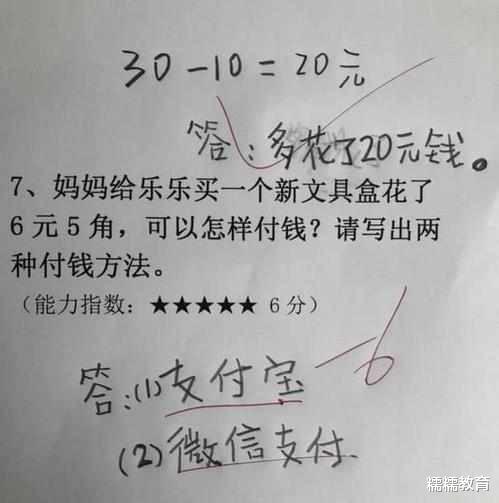 30-10=20元
答:多花了20元钱。
7、妈妈给乐乐买一个新文具盒花了
6元5角，可以怎样付钱？请写出两
种付钱方法。
（能力指数：★★★★★ 6分）
-6
答:(1)支付宝
(2)微信支付.
糯糯教育